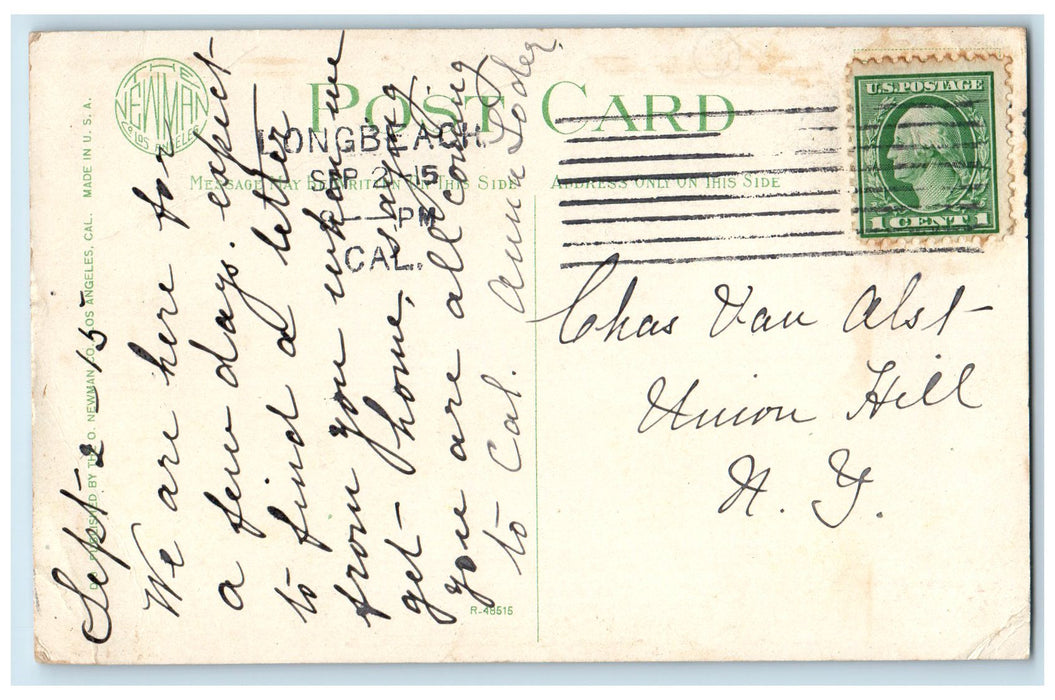 POST CARD
THE
NEWMAN
CO
LOS ANGELES
MESSAGE MAY BE WRITTEN ON THIS SIDE
ADDRESS ONLY ON THIS SIDE
LONGBEACH
SEP 2 15
PM
CAL.
U.S. POSTAGE
1 CENT 1
PUBLISHED BY THE O. NEWMAN CO. LOS ANGELES, CAL. MADE IN U. S. A.
Sept - 2 - 15
We are here for
a few days. expect
to find a letter
from you when we
get - home, saying
you are all coming
to Cal. Ann Loder.
Chas Van Alst -
Union Hill
N. Y.
R-48515